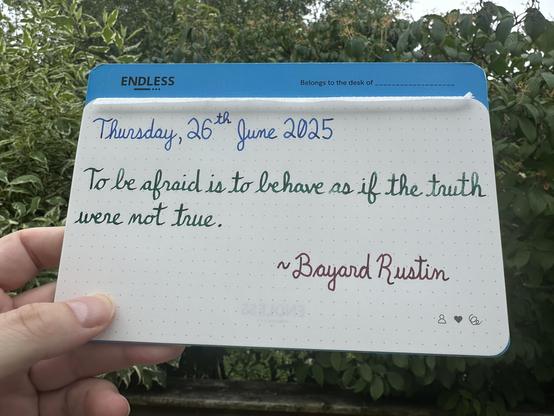 ENDLESS
Belongs to the desk of
Thursday, 26th June 2025
To be afraid is to behave as if the truth
were not true.
~Bayard Rustin
ENDLESS